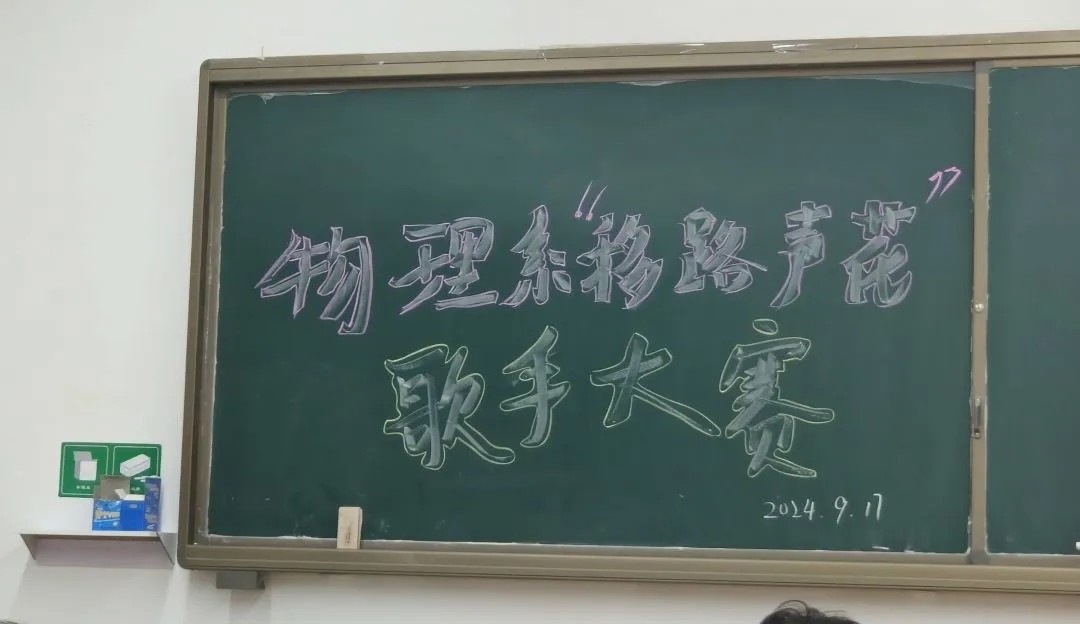 物理系“移路声花”
歌手大赛
2024.9.17